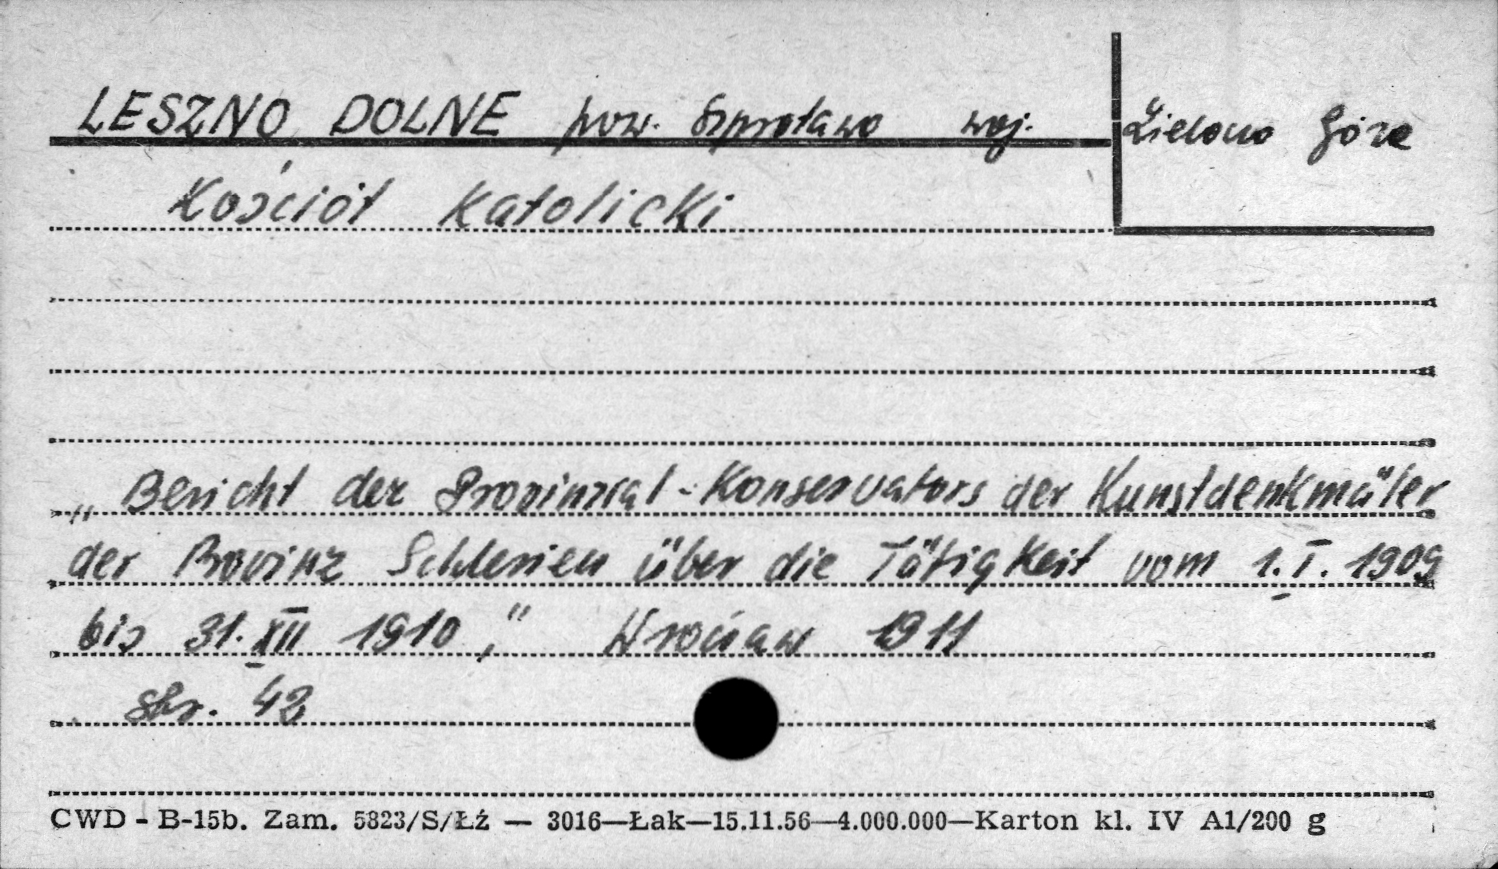 LESZNO DOLNE pow. Szprotawa woj. Zielona Góra
Kościół Katolicki
„Bericht der Provinzial-Konservators der Kunstdenkmäler
der Provinz Schlesien über die Tätigkeit vom 1.I.1909
bis 31.XII 1910," Wrocław 1911
str. 43
CWD - B-15b. Zam. 5823/S/Łź — 3016—Łak—15.11.56—4.000.000—Karton kl. IV A1/200 g